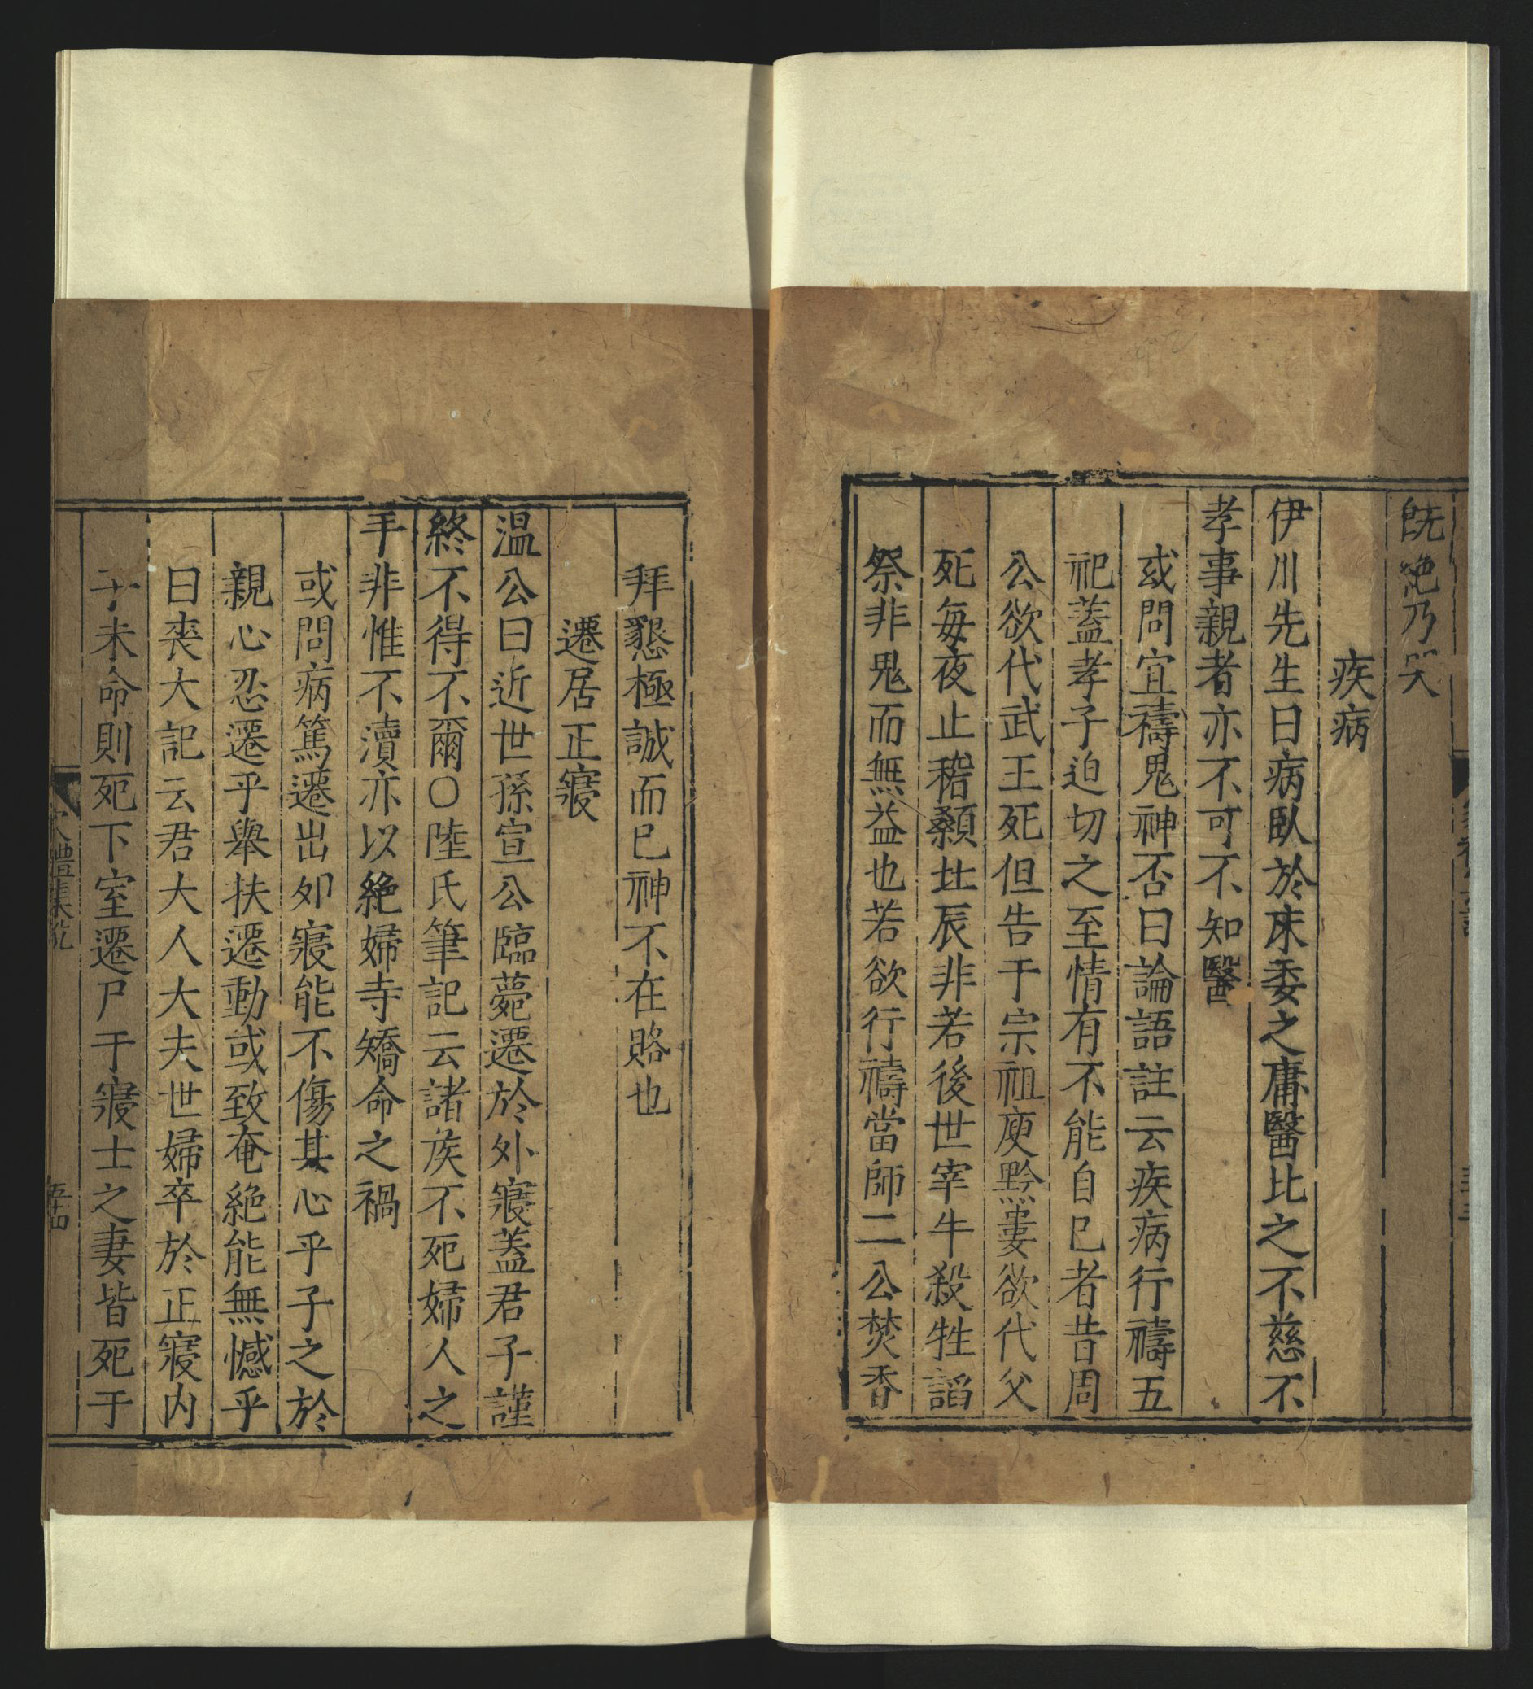 既絶乃哭
疾病
伊川先生曰病臥於床委之庸醫比之不慈不
孝事親者亦不可不知醫
或問宜禱鬼神否曰論語註云疾病行禱五
祀蓋孝子迫切之至情有不能自已者昔周
公欲代武王死但告于宗祖庾黔婁欲代父
死每夜止稽顙北辰非若後世宰牛殺牲謟
祭非鬼而無益也若欲行禱當師二公焚香
拜懇極誠而已神不在賂也
遷居正寢
温公曰近世孫宣公臨薨遷於外寢蓋君子謹
終不得不爾○陸氏筆記云諸侯不死婦人之
手非惟不瀆亦以絶婦寺矯命之禍
或問病篤遷出如寢能不傷其心乎子之於
親心忍遷乎舉扶遷動或致奄絶能無憾乎
曰喪大記云君大人大夫世婦卒於正寢内
子未命則死下室遷尸于寢士之妻皆死于